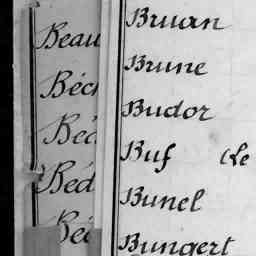 Beau
Béc
Béd
Béd
Béc
Bruan
Brune
Budor
Buf (Le
Bunel
Bungert